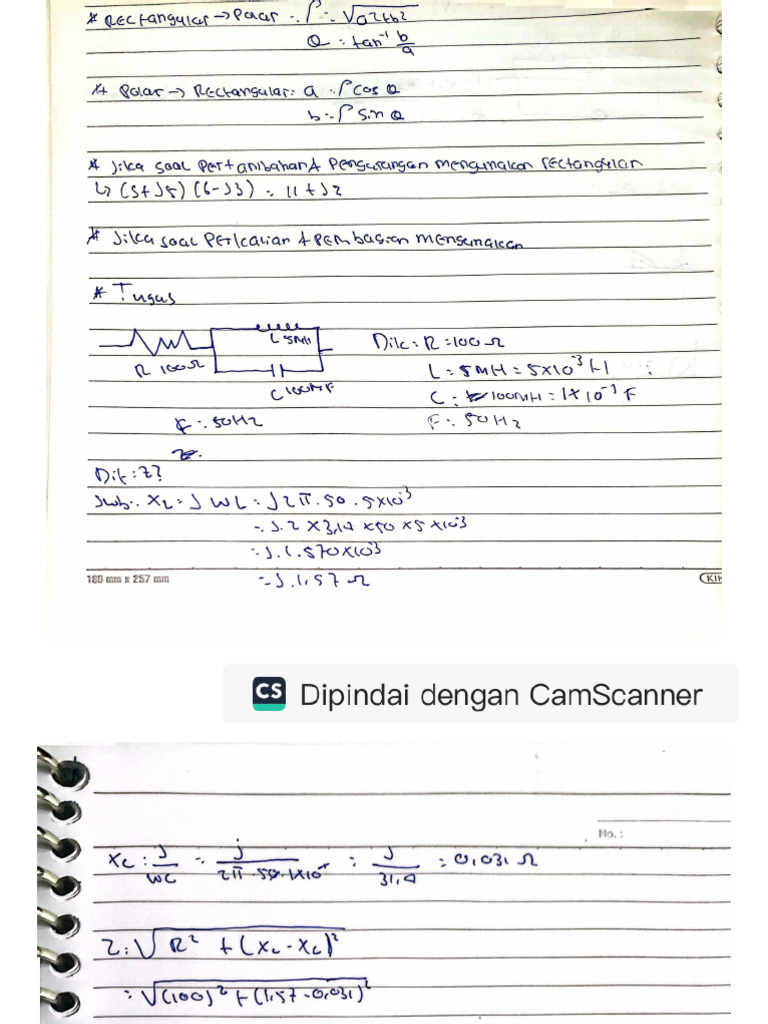 * Rectangular → Polar : ρ = √a2+b2
θ = tan⁻¹ b/a
* Polar → Rectangular : a = ρ cos θ
b = ρ sin θ
* Jika soal Pertambahan & Pengurangan mengunakan rectangular
↳ (5+J5) (6-J3) = 11+J2
* Jika soal Perkalian & Pembagian mengunakan
* Tugas
L 5MH
R 100Ω
C 100MF
F = 50Hz
Dik : R = 100 Ω
L = 5MH = 5x10⁻³ H
C = 100MH = 1x10⁻¹ F
F = 50Hz
Dit : Z?
Jwb : XL = J WL = J 2π . 50 . 5x10⁻³
= J. 2 x 3,14 x 50 x 5 x 10⁻³
= J. 1.570x10⁻³
= J. 1,57 Ω
180 mm x 257 mm
CS Dipindai dengan CamScanner
No. :
Xc = J/WC = j/2π . 50 . 1x10 = J/31,4 = 0,031 Ω
Z = √R² + (XL - Xc)²
= √(100)² + (1,57 - 0,031)²